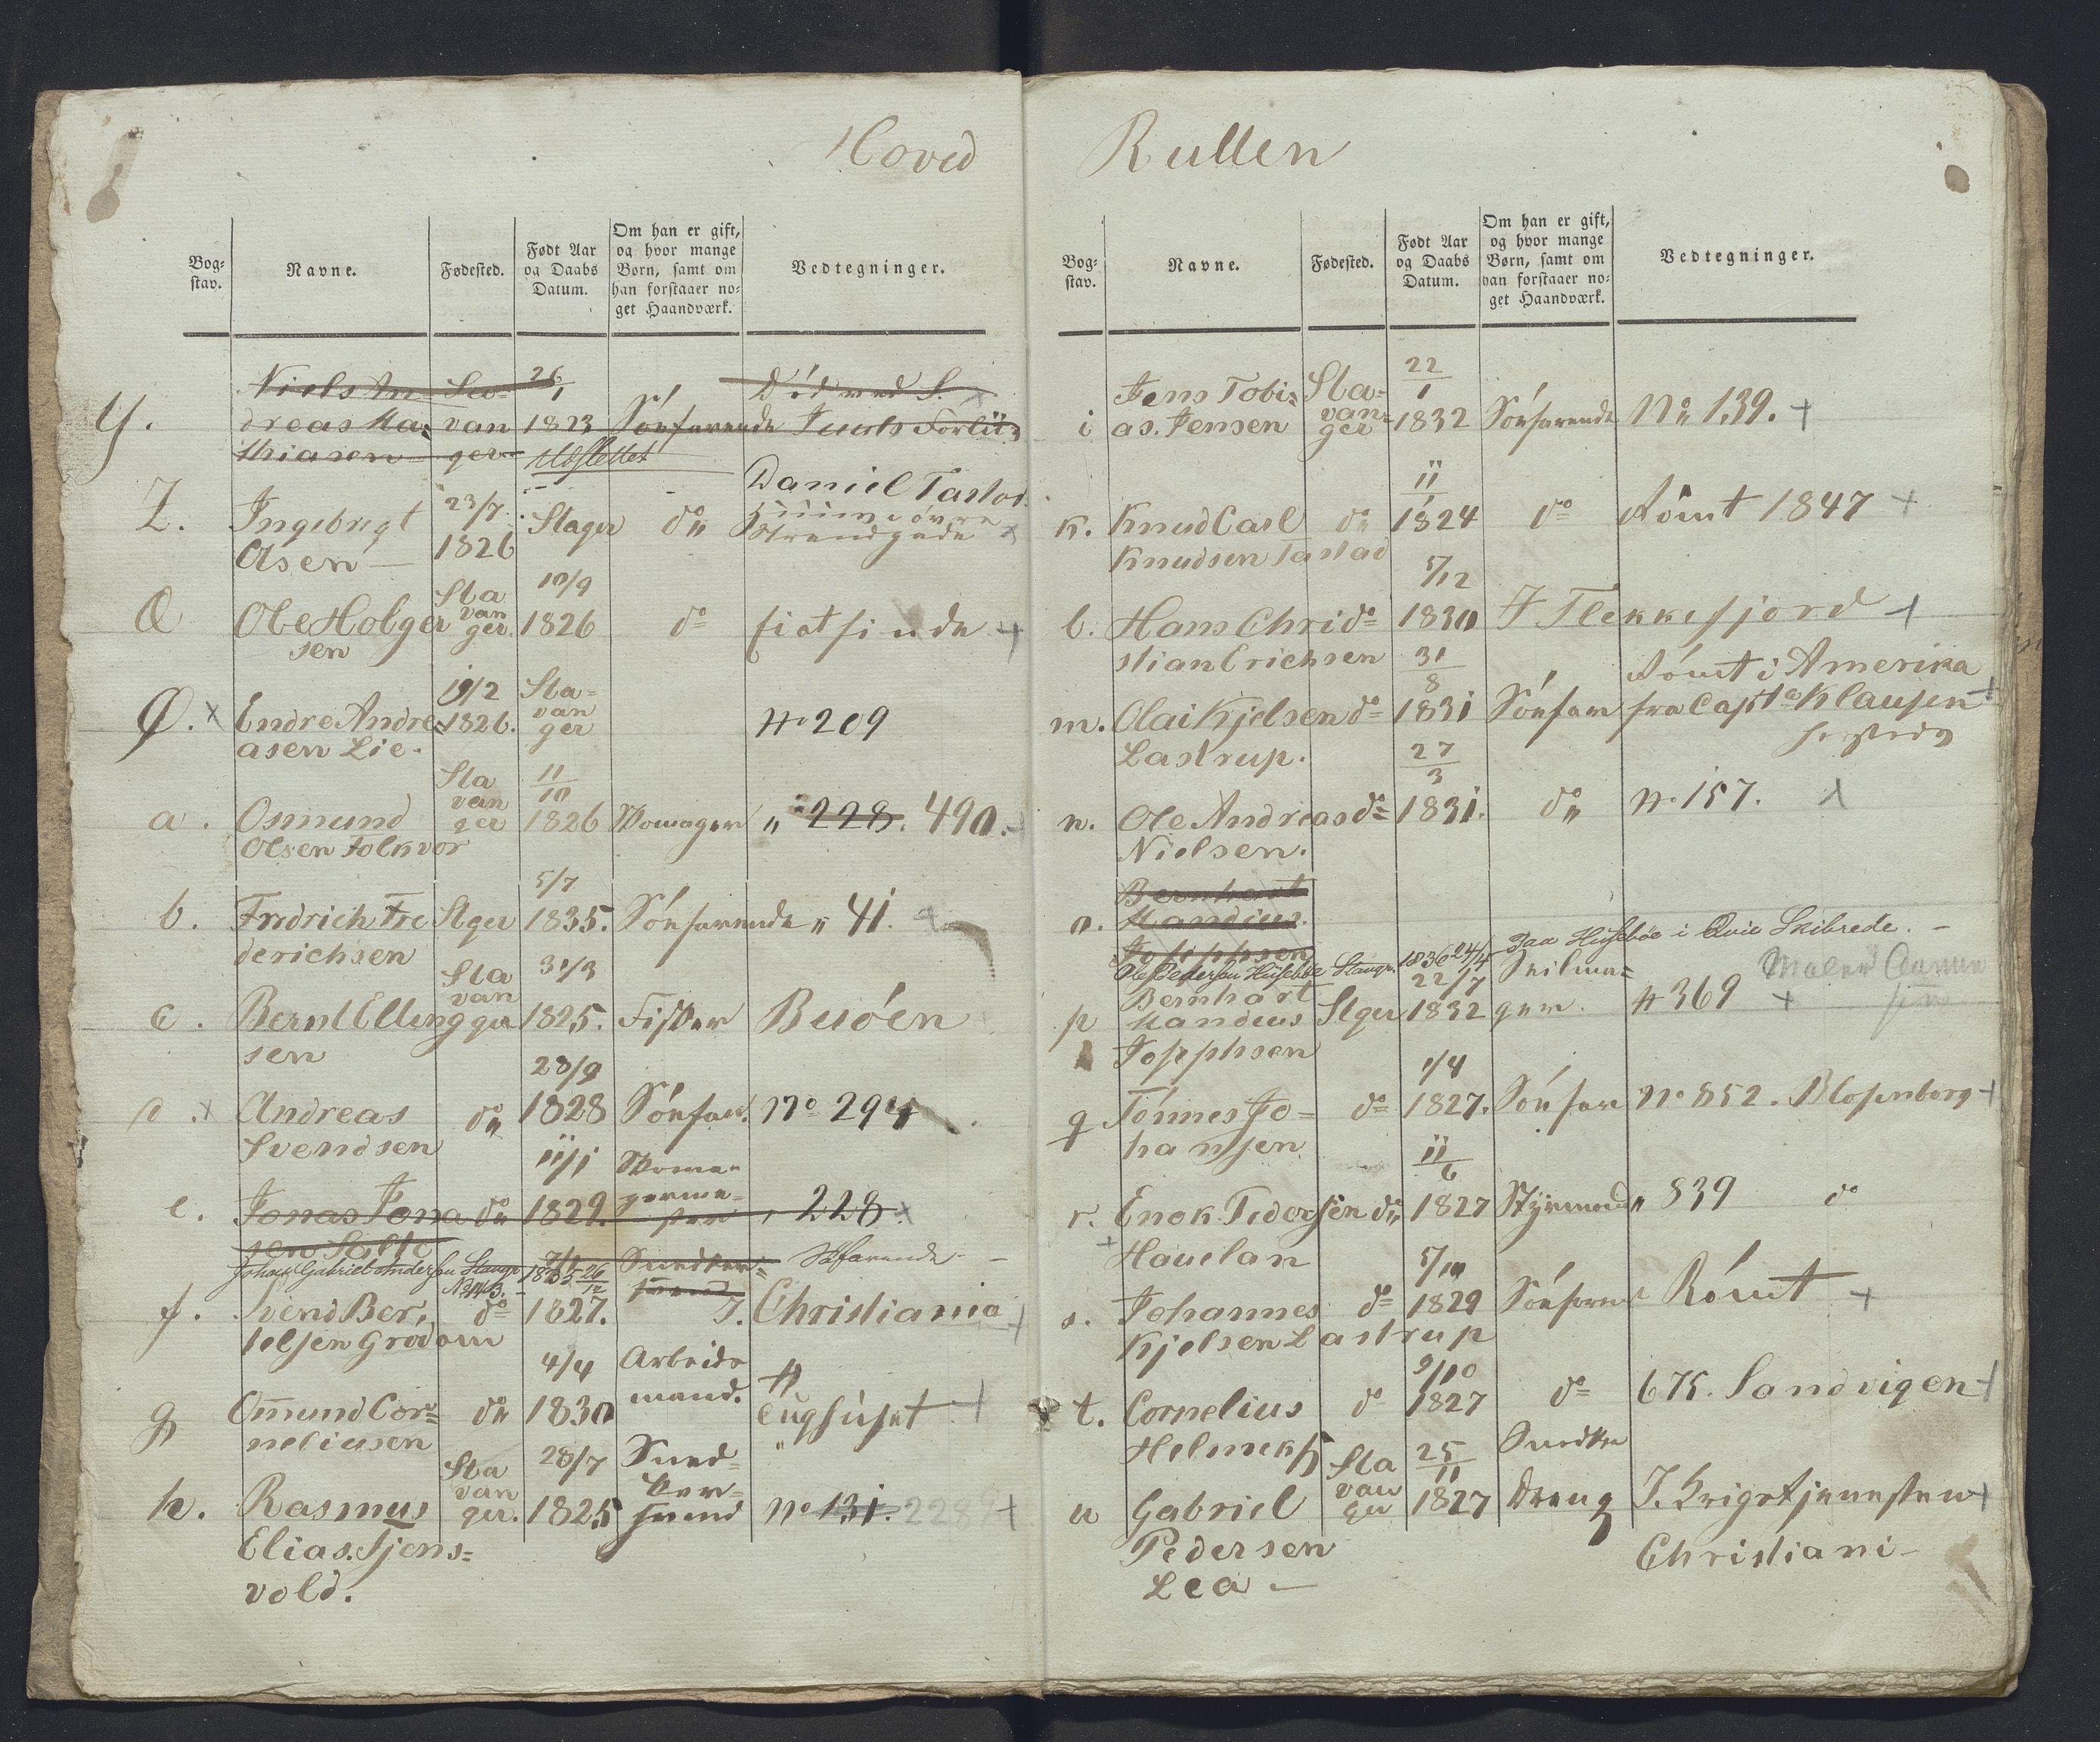 Hoved
Bog-
stav.
Navne.
Fødested.
Født Aar
og Daabs
Datum.
Om han er gift,
og hvor mange
Børn, samt om
han forstaaer no-
get Haandværk.
Vedtegninger.
Y.
Niels An
dreas Ma=
thiasen
Sta=
van
ger
26/1
1823
Udslettet
Søefarende
Død ved S.
Juuls Forliis
Z.
Ingebregt
Olsen
23/7
1826
Stager
do
Daniel Tastad
Strandgade x
Æ
Ole Holger
sen
Sta
van
ger.
10/9
1826
do
+
Ø. x
Endre Andre=
asen Lie.
19/2
1826.
Sta=
van
ger
N 209
a.
Osmund
Olsen Folkvor
Sta
van
ger
11/10
1826
Skomager
" 228. 490. +
b.
Fredrich Fre
derichsen
Stger
5/7
1835.
Søefarende
" 41.
c.
Bernt Elling
sen
Sta
van
ger
31/3
1825.
Fisker
Buøen
d. x
Andreas
Svendsen
do
28/9
1828
Søefar.
No 294
e.
Jonas Jona
sen Salte
do
11/1
1829.
Skoma-
germe-
ster
" 228. x
Johan Gabriel Andersen Stangr.
No 143.
1835 26/12
Søfarende
f.
Svend Ber,
telsen Grødem
do
1827.
Sundker=
svend
I. Christiania +
g
Omund Cor=
neliusen
do
4/4
1830
Arbeids
mand.
Tugthuset +
h.
Rasmus
Elias. Tjens=
vold.
Sta
van
ger.
28/7
1825
Sned=
ker=
svend
No 131. 228 +
Rullen
Bog-
stav.
Navne.
Fødested.
Født Aar
og Daabs
Datum.
Om han er gift,
og hvor mange
Børn, samt om
han forstaaer no-
get Haandværk.
Vedtegninger.
i
Jens Tobi=
as. Jensen
Sta=
van=
ger
22/1
1832
Søefarende
No 139. +
k.
Knud Carl
Knudsen Tastad
do
11/1
1824
do
Rømt 1847 +
l.
Hans Chri
stian Erichsen
do
5/12
1830
I Flekkefjord +
m.
Olai Kjelsen
Lastrup.
do
31/8
1831
Søefar
Rømt i Amerika
fra Capt Klausen +
n.
Ole Andreas
Nielsen.
do
27/3
1831.
do
N. 157. x
o.
Bernhart
Mandius.
Josephsen
Ole Pedersen Husebøe
Stangr.
1836 24/4
Paa Husebøe i Qvie Skibrede.
p
Bernhart
Mandius
Josephsen
Stger
22/7
1832
Seilma=
ger.
N 369 +
Maler
q
Tønnes Jo=
hansen
do
1/4
1827.
Søefar
No 852. Blosenborg +
r.
Enok Pedersen
Hauelan
do
11/6
1827
Styrmand
" 839 do
s.
Johannes
Kjelsen Lastrup
do
5/10
1829
Søefaren
Rømt +
t.
Cornelius
Helmiks
do
9/10
1827
do
67K. Sandvigen +
u
Gabriel
Pedersen
Lea
Sta
van
ger
25/11
1827
Snedker
Dreng
I. Krigstjenesten +
Christiani